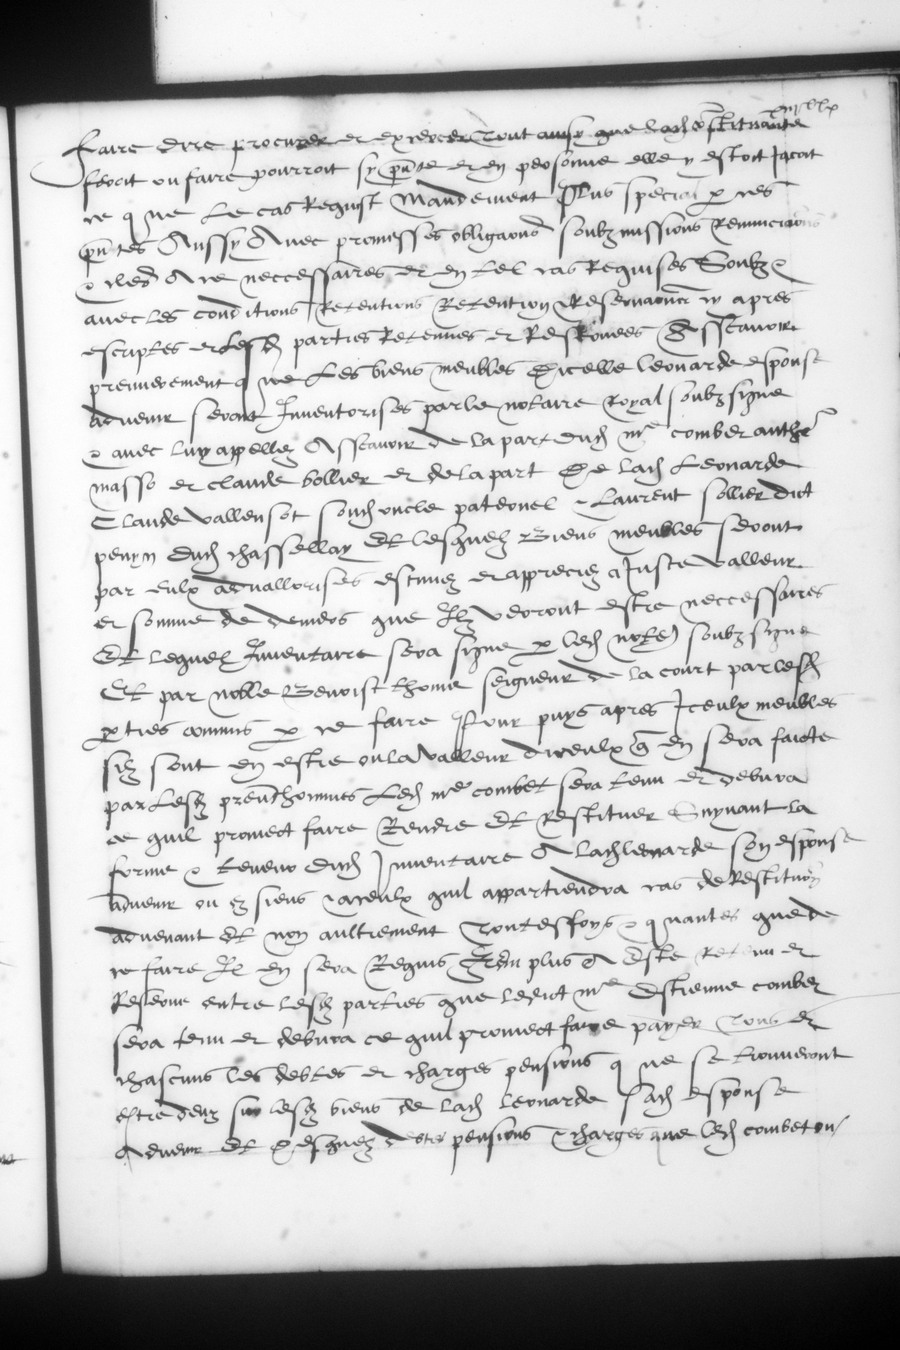 faire dire procurer et exercer tout ainsy que lad constituante
feroit ou faire pourroit sy pnte et en personne elle y estoit jacoit
ce que le cas requist mandement plus special p ces
pntes Aussy Avec promesses obligaons soubzmissions renunciaons
A ce neccessaires et en tel cas requises Soubz
avec les conditions retentions retention reservaon cy apres
escriptes et lesd parties retenues et reservees Asscavoir
premierement que les biens meubles d'icelle leonarde esponse
advenir seront Inventorises par le notaire royal soubzsigne
avec luy appellez Asscavoir de la part dud me combet anthe
masso et claude bollier et de la part de lad Leonarde
Claude vallensot soud oncle paternel Laurent sollier dict
penyn dud chassellay Et lesquelz biens meubles seront
par eulx advallorises estimez et appreciez a juste valleur
et somme de deniers que Ilz verront estre neccessaires
Et lequel Inventaire sera signe p led notre soubzsigne
Et par noble Benoist thome seigneur de la court par lesd
pties commis p ce faire Pour puys apres Iceulx meubles
silz sont en estre ou la valleur d'iceulx q en sera faicte
par lesd preudhommes Led me combet sera tenu et debvra
ce quil promect faire Rendre Et restituer Suyvant la
forme teneur dud Inventaire A lad leonarde son esponse
advenir ou es siens a ceulx quil appartiendra cas de Restituon
advenant Et non aultrement Toutesfoys quantes que de
ce faire Il en sera Requis Item plus a Este retenu et
Reserve entre lesd parties que ledict me Estienne combet
sera tenu et debvra ce quil promect faire payer Tous et
chascuns les debtes et charges pensions que se trouveront
estre deuz sur lesd biens de lad leonarde sad esponse
Advenir Et desquelz debtes pensions charges que led combet ou